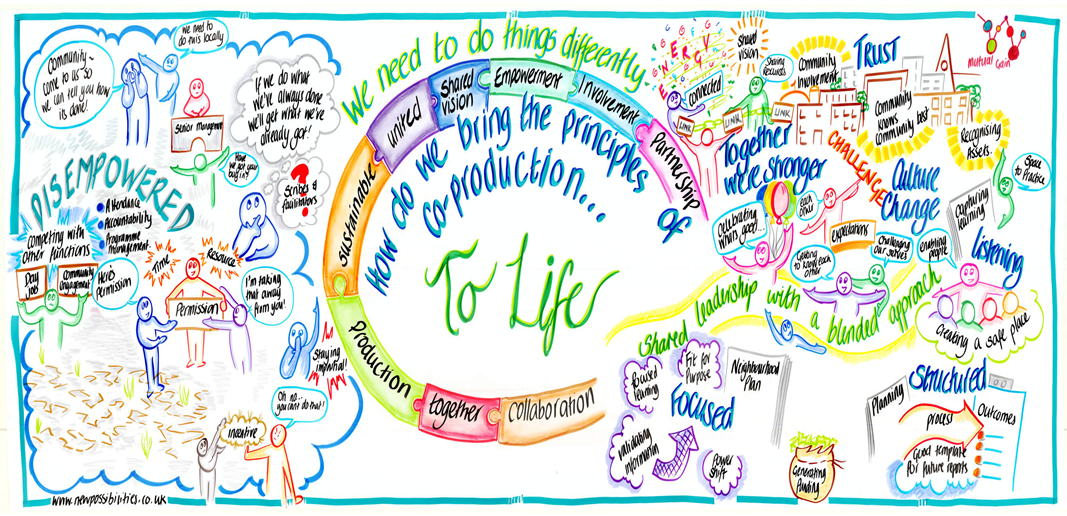 We need to do things differently
How do we bring the principles of
co-production...
To Life
sustainable
united
Shared
vision
Empowerment
Involvement
Partnership
production
together
collaboration
Community ~
come to us ~ so
we can tell you how
its done!
we need to
do this locally
Senior Management
If we do what
we've always done
we'll get what we've
already got!
Have
we got your
buy in?
Scribes &
facilitators
?
DISEMPOWERED
Attendance
Accountability
Programme
management
Competing with
other functions
Day
job
Community
engagement
Here's
Permission
Time
Resource
Permission
I'm taking
that away
from you!
Staying
impartial!
Oh no...
you can't do that!
Incentive
www.newpossibilities.co.uk
ENERGY
connected
Shared
vision
Sharing
Resources
LINK
LINK
LINK
Together
we're stronger
Community
involvement
TRUST
Mutual Gain
Community
knows
community best
Recognising
Assets.
CHALLENGE
Culture
Change
Space
to Practice
Capturing
learning
Listening
Celebrating
whats good...
each
other
expectations
Getting
to know each
other
Challenging
our selves
enabling
people
Shared leadership with a blended approach
Creating a safe place
Focused
learning
Fit for
Purpose
Neighbourhood
Plan
FOCUSED
Validating
information
Power
shift
Generating
funding
Structured
Planning
process
Outcomes
Good template
for future reports